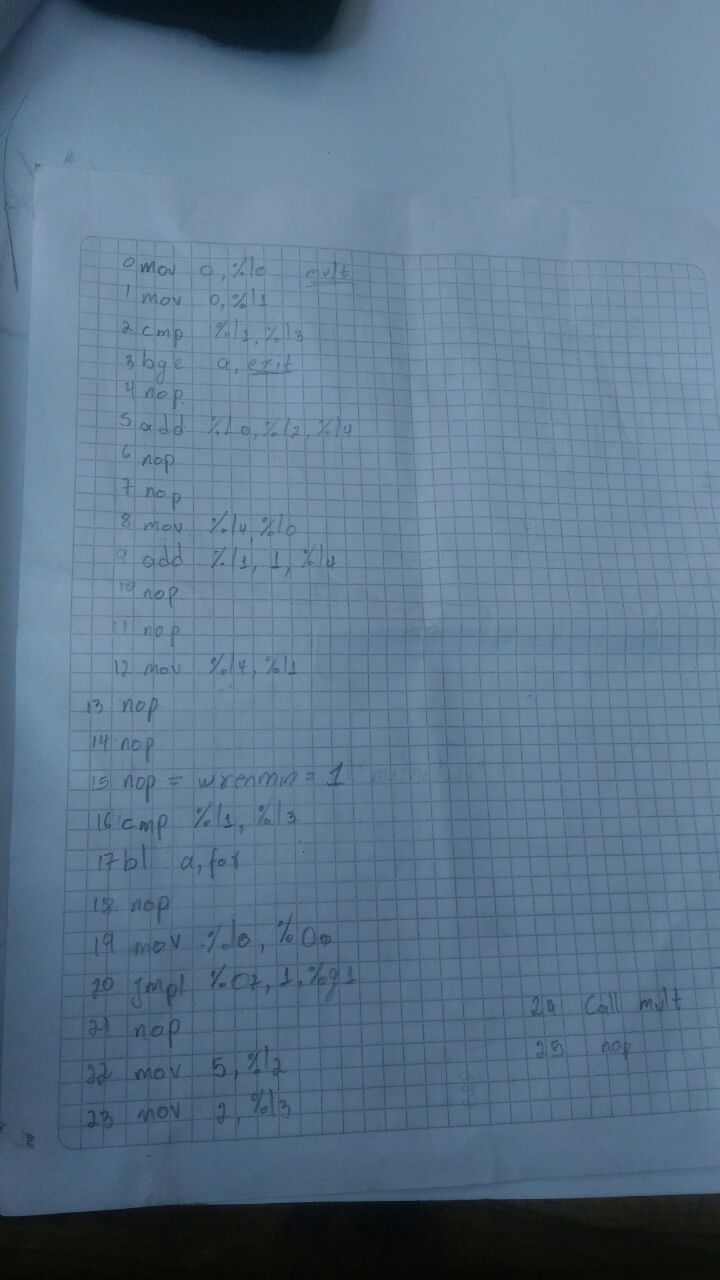 0 mov 0, %l0 mult
1 mov 0, %l1
2 cmp %l1, %l3
3 bge a, exit
4 nop
5 add %l0, %l2, %l4
6 nop
7 nop
8 mov %l4, %l0
9 add %l1, 1, %l4
10 nop
11 nop
12 mov %l4, %l1
13 nop
14 nop
15 nop = wrenmn = 1
16 cmp %l1, %l3
17 bl a, for
18 nop
19 mov %l0, %O0
20 jmpl %O7, 1, %g1
21 nop
22 mov 5, %l2
23 mov 2, %l3
24 Call mult
25 nop